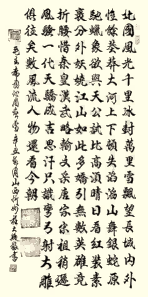 北國風光千里冰封萬里雪飄望長城內外
惟餘莽莽大河上下頓失滔滔山舞銀蛇原
馳蠟象欲與天公試比高須晴日看紅裝素
裹分外妖嬈江山如此多嬌引無數英雄競
折腰惜秦皇漢武略輸文采唐宗宋祖稍遜
風騷一代天驕成吉思汗只識彎弓射大雕
俱往矣數風流人物還看今朝
毛主席詞沁園春雪辛丑